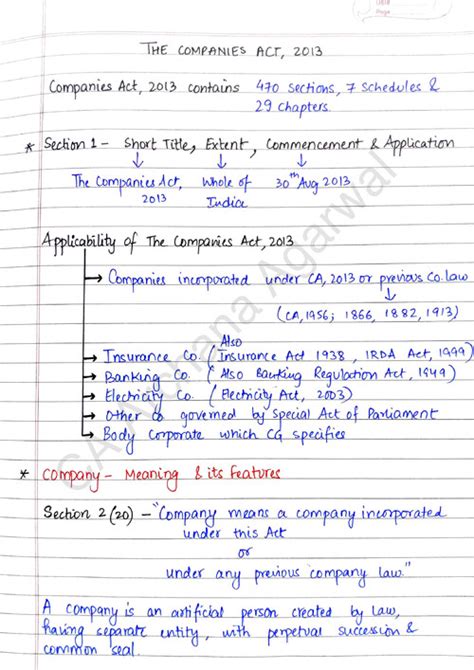 THE COMPANIES ACT, 2013
Companies Act, 2013 contains 470 sections, 7 schedules &
29 chapters.
* Section 1 - Short Title, Extent, Commencement & Application
↓ ↓ ↓
The Companies Act, Whole of 30th Aug 2013
2013 India
Applicability of The Companies Act, 2013
→ Companies incorporated under CA, 2013 or previous Co. law
↓
(CA, 1956; 1866, 1882, 1913)
Also
→ Insurance Co. (Insurance Act 1938, IRDA Act, 1999)
→ Banking Co. (Also Banking Regulation Act, 1949)
→ Electricity Co. (Electricity Act, 2003)
→ Other Co governed by Special Act of Parliament
→ Body Corporate which CG specifies
* Company - Meaning & its features
Section 2(20) - "Company means a company incorporated
under this Act
or
under any previous company law."
A company is an artificial person created by law,
having separate entity, with perpetual succession &
common seal.
CA Archana Agarwal